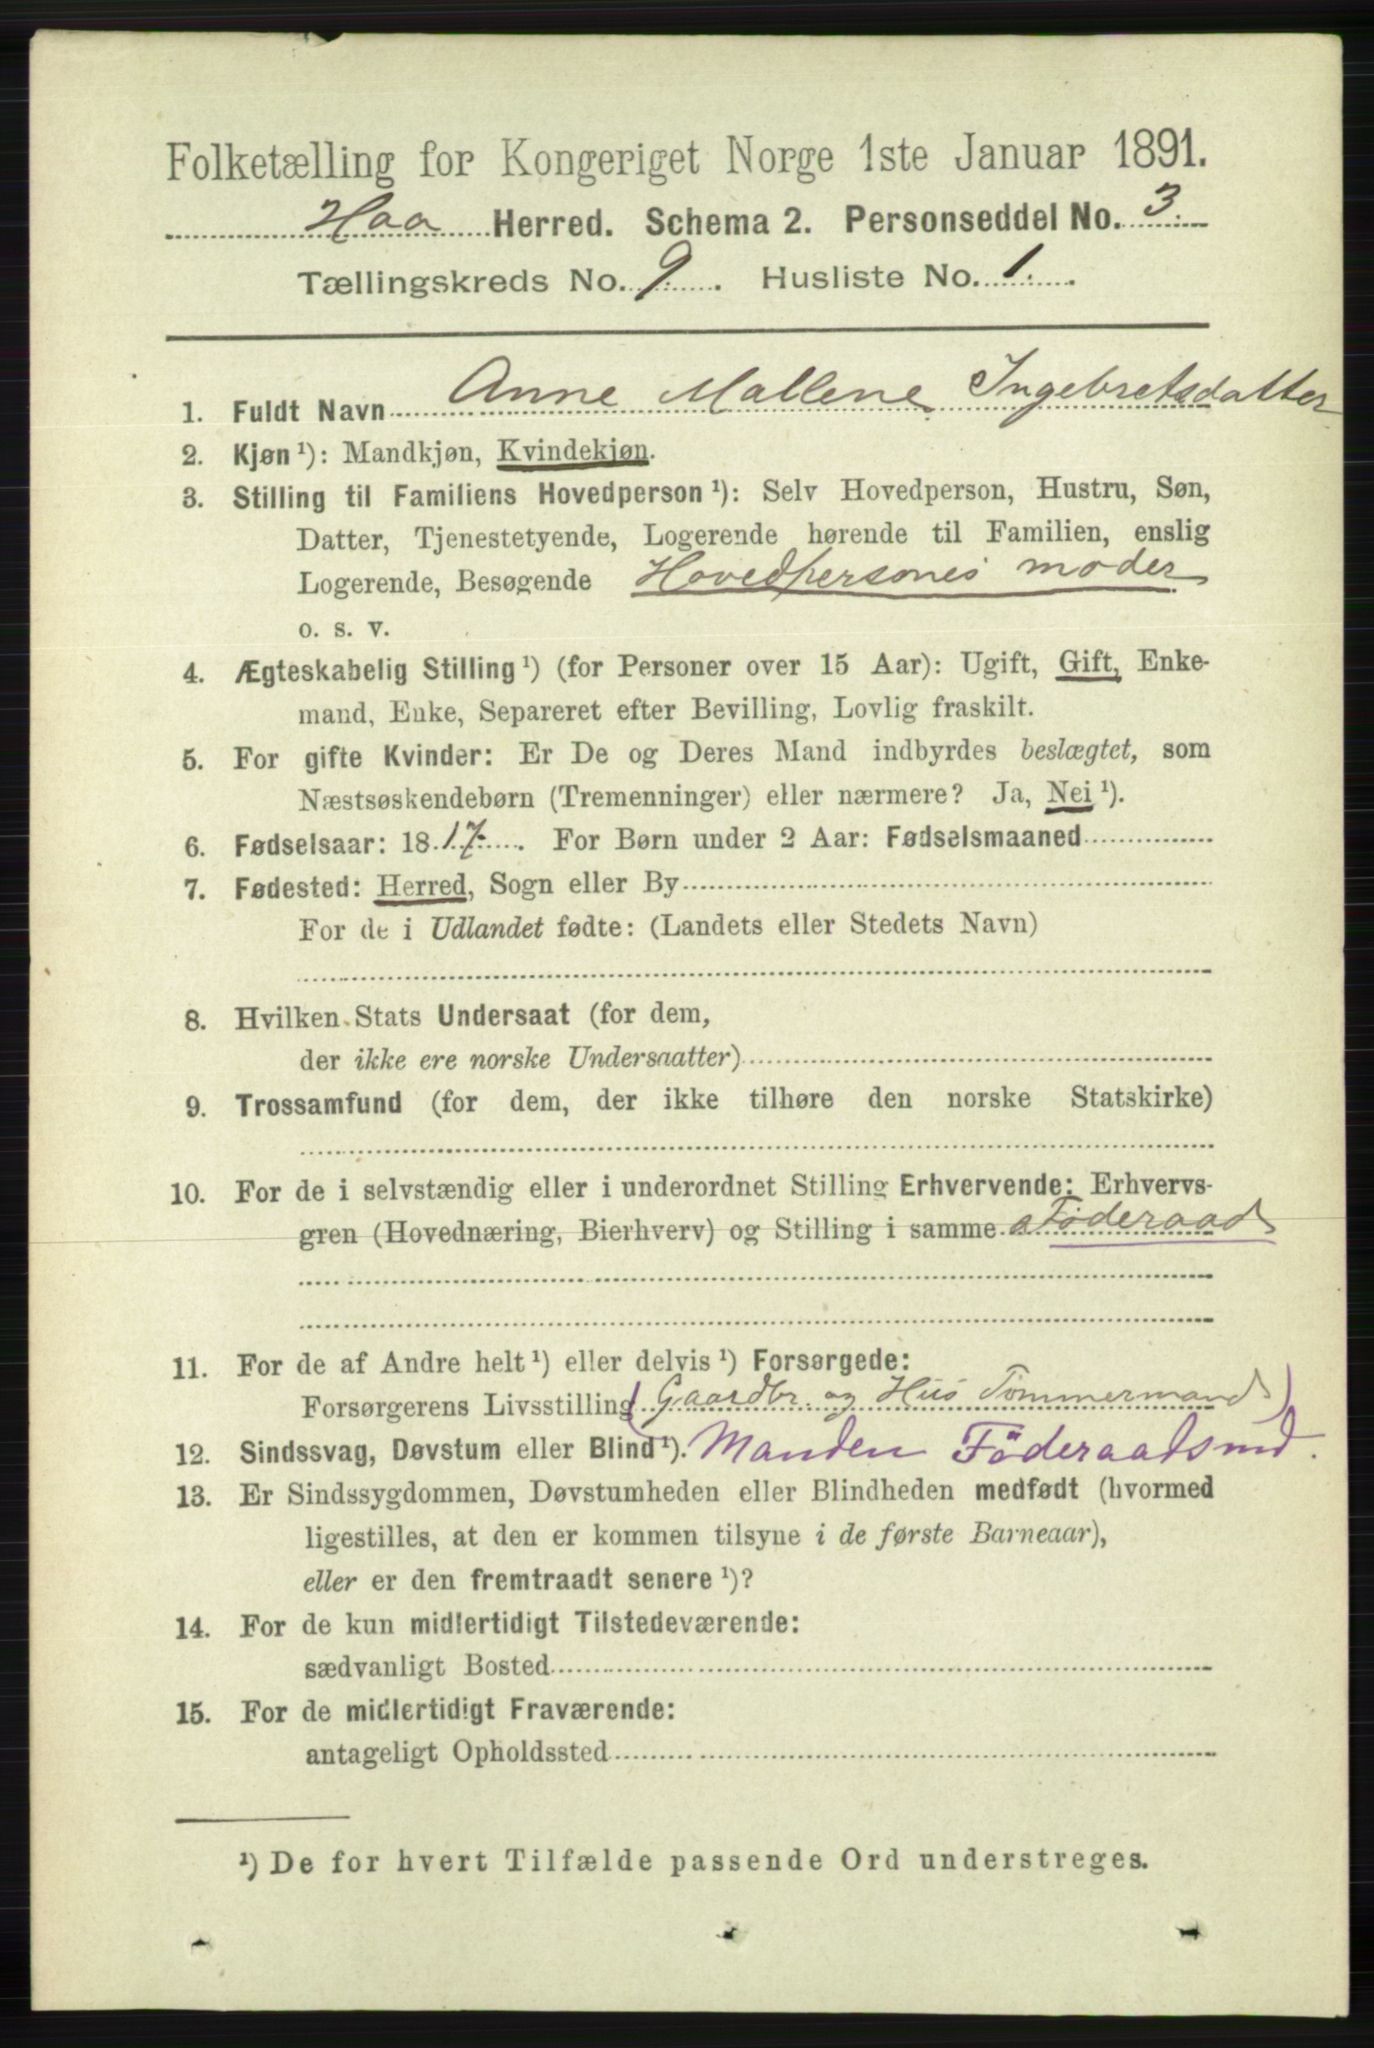 Folketælling for Kongeriget Norge 1ste Januar 1891.
Haa Herred. Schema 2. Personseddel No. 3.
Tællingskreds No. 9. Husliste No. 1.
1. Fuldt Navn Anne Mallene Ingebretsdatter
2. Kjøn ¹): Mandkjøn, Kvindekjøn.
3. Stilling til Familiens Hovedperson ¹): Selv Hovedperson, Hustru, Søn,
Datter, Tjenestetyende, Logerende hørende til Familien, enslig
Logerende, Besøgende Hovedpersones moder
o. s. v.
4. Ægteskabelig Stilling ¹) (for Personer over 15 Aar): Ugift, Gift, Enke-
mand, Enke, Separeret efter Bevilling, Lovlig fraskilt.
5. For gifte Kvinder: Er De og Deres Mand indbyrdes beslægtet, som
Næstsøskendebørn (Tremenninger) eller nærmere? Ja, Nei ¹).
6. Fødselsaar: 1817. For Børn under 2 Aar: Fødselsmaaned
7. Fødested: Herred, Sogn eller By
For de i Udlandet fødte: (Landets eller Stedets Navn)
8. Hvilken Stats Undersaat (for dem,
der ikke ere norske Undersaatter)
9. Trossamfund (for dem, der ikke tilhøre den norske Statskirke)
10. For de i selvstændig eller i underordnet Stilling Erhvervende: Erhvervs-
gren (Hovednæring, Bierhverv) og Stilling i samme Føderaad
11. For de af Andre helt ¹) eller delvis ¹) Forsørgede:
Forsørgerens Livsstilling (Gaardbr. og Hus Tømmermand)
12. Sindssvag, Døvstum eller Blind ¹). Manden Föderaadsmd.
13. Er Sindssygdommen, Døvstumheden eller Blindheden medfødt (hvormed
ligestilles, at den er kommen tilsyne i de første Barneaar),
eller er den fremtraadt senere ¹)?
14. For de kun midlertidigt Tilstedeværende:
sædvanligt Bosted
15. For de midlertidigt Fraværende:
antageligt Opholdssted
¹) De for hvert Tilfælde passende Ord understreges.